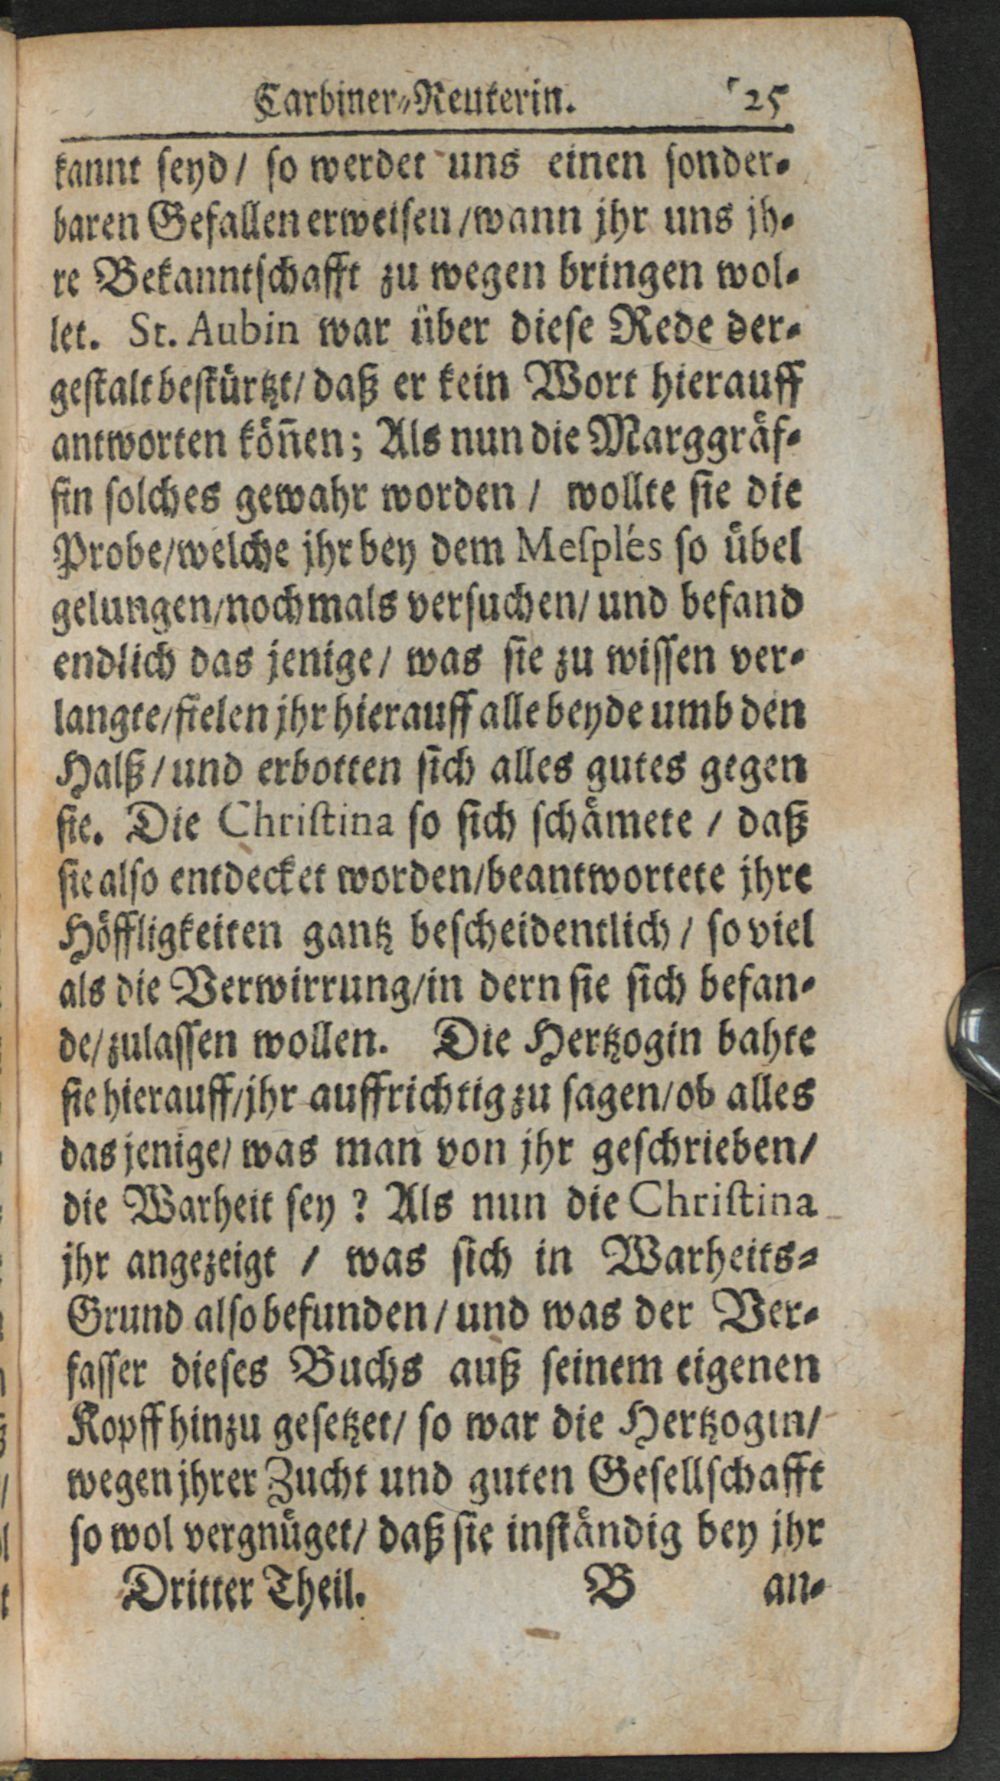 Carbiner-Reuterin. 25
kannt seyd / so werdet uns einen sonder-
baren Gefallen erweisen / wann jhr uns jh-
re Bekanntschafft zu wegen bringen wol-
let. St. Aubin war über diese Rede der-
gestalt bestürtzt / daß er kein Wort hierauff
antworten köñen; Als nun die Marggräf-
fin solches gewahr worden / wollte sie die
Probe / welche jhr bey dem Mesplés so übel
gelungen / nochmals versuchen / und befand
endlich das jenige / was sie zu wissen ver-
langte / fielen jhr hierauff alle beyde umb den
Halß / und erbotten sich alles gutes gegen
sie. Die Christina so sich schämete / daß
sie also entdecket worden / beantwortete jhre
Höffligkeiten gantz bescheidentlich / so viel
als die Verwirrung / in dern sie sich befan-
de / zulassen wollen. Die Hertzogin bahte
sie hierauff / jhr auffrichtig zu sagen / ob alles
das jenige / was man von jhr geschrieben /
die Warheit sey ? Als nun die Christina
jhr angezeigt / was sich in Warheits-
Grund also befunden / und was der Ver-
fasser dieses Buchs auß seinem eigenen
Kopff hinzu gesetzet / so war die Hertzogin /
wegen jhrer Zucht und guten Gesellschafft
so wol vergnüget / daß sie inständig bey jhr
Dritter Theil. B an-